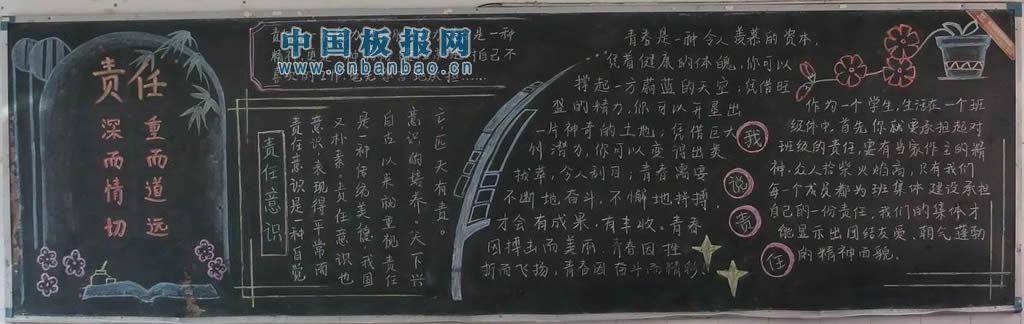 责任
重而道远
深而情切
中国板报网
www.cnbanbao.cn
是一种
责任意识
责任意识是一种自觉
意识,表现得平常而
又朴素。责任意识也
是一种传统美德,我国
自古以来就重视责任
意识的培养。天下兴
亡匹夫有责。
青春是一种令人羡慕的资本,
凭着健康的体魄,你可以
撑起一方蔚蓝的天空;凭借旺
盛的精力,你可以开垦出
一片神奇的土地;凭借巨大
的潜力,你可以变得出类
拔萃,令人刮目;青春需要
不断地奋斗,不懈地拼搏,
才会有成果,有丰收。青春
因搏击而美丽,青春因
折而飞扬,青春因奋斗而精彩!
我说责任
作为一个学生,生活在一个班
级中,首先你就要承担起对
班级的责任,要有当家作主的精
神,众人拾柴火焰高,只有我们
每一个成员都为班集体建设承担
自己的一份责任,我们的集体才
能显示出团结友爱、朝气蓬勃
的精神面貌。